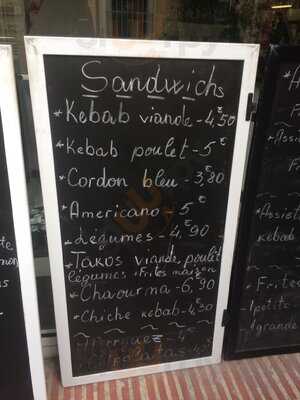 Sandwichs
*Kebab viande - 4,50€
*Kebab poulet - 5€
*Cordon bleu - 3,80€
*Americano - 5€
*Légumes - 4,90€
*Takos viande, poulet
légumes
*Chaourma - 6,90€
*Chiche kebab - 4,30€
Assie
kebab
Frite
petite
grande